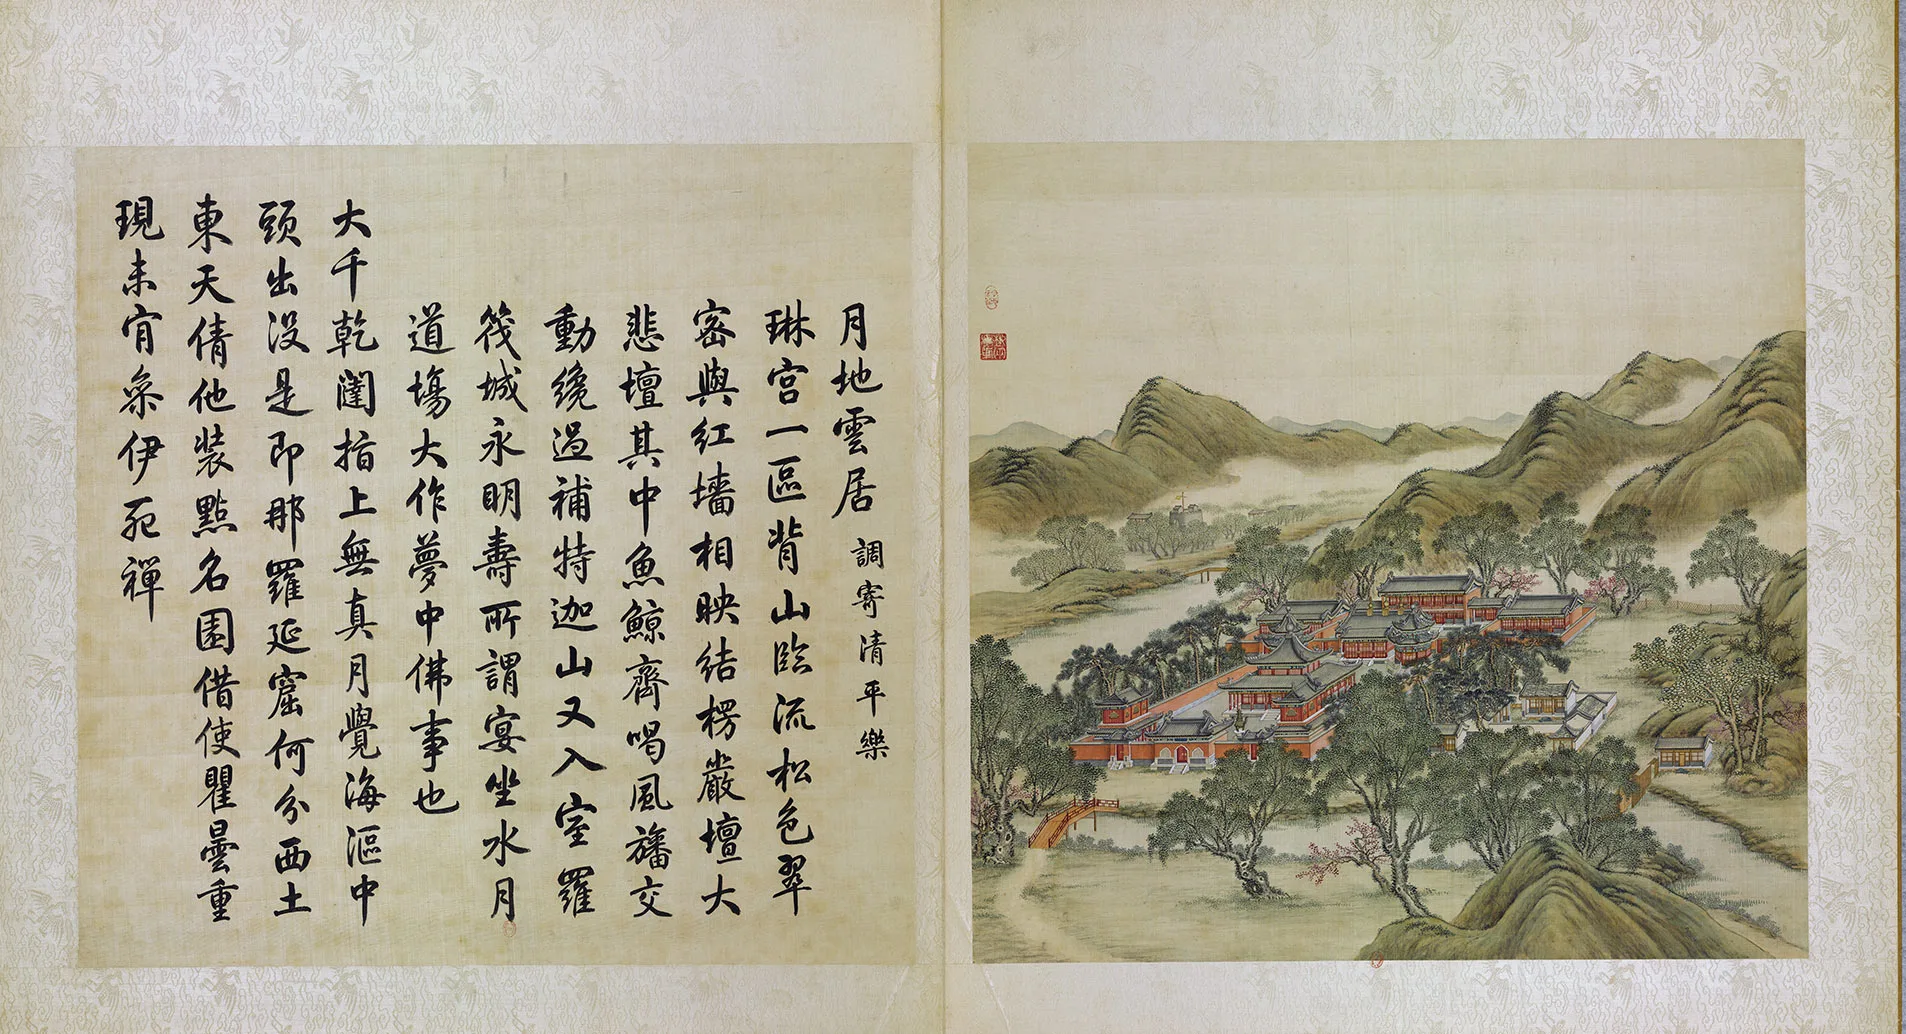 月地雲居 調寄清平樂
琳宫一區背山臨流松色翠
密與红墻相映结楞嚴壇大
悲壇其中魚鯨齋喝風旛交
動纔過補特迦山又入室羅
筏城永明壽所謂宴坐水月
道場大作夢中佛事也
大千乾闥指上無真月覺海漚中
頭出没是即那羅延窟何分西土
東天倩他裝點名園借使瞿曇重
現未肯參伊死禪